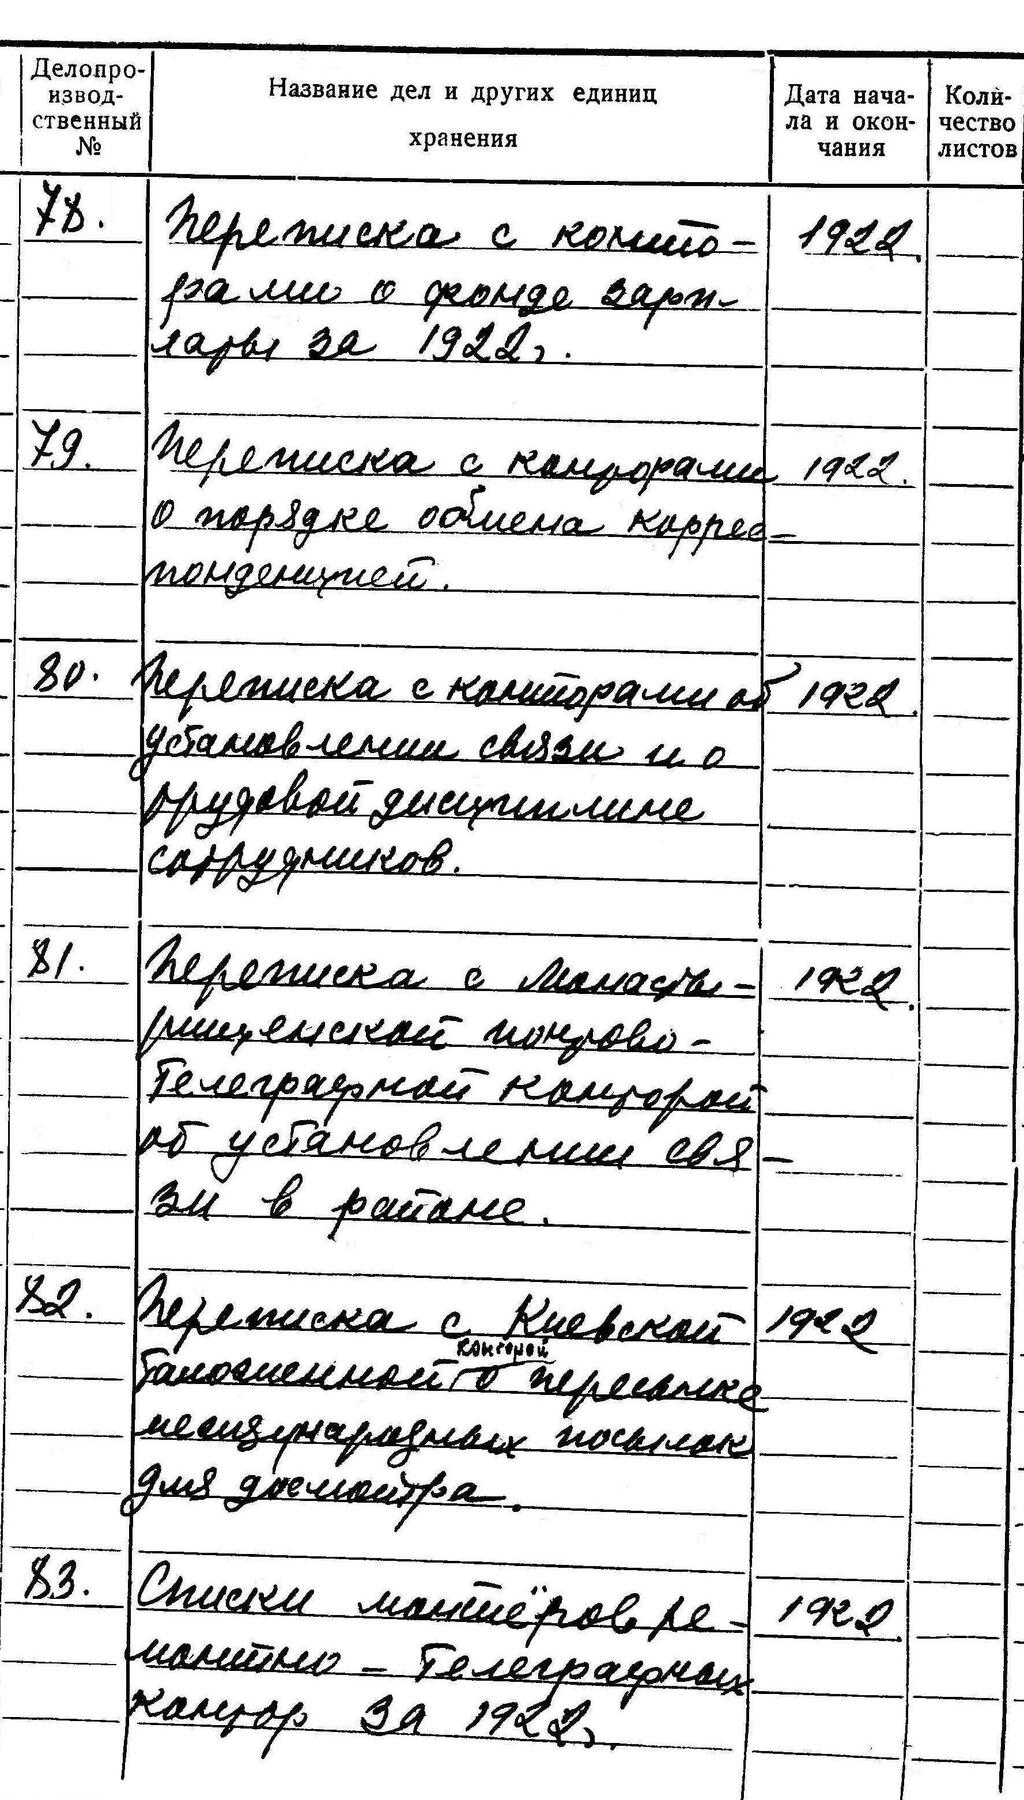 Делопро-
извод-
ственный
№
Название дел и других единиц
хранения
Дата нача-
ла и окон-
чания
Коли-
чество
листов
78. Переписка с конто- 1922.
рами о фонде зарп-
латы за 1922 г.
79. Переписка с конторами 1922.
о порядке обмена коррес-
понденцией.
80. Переписка с конторами об 1922.
установлении связи и о
трудовой дисциплине
сотрудников.
81. Переписка с Монасты- 1922.
рищенской почтово-
телеграфной конторой
об установлении свя-
зи в районе.
82. Переписка с Киевской 1922
таможенной конторой о пересылке
международных посылок
для досмотра.
83. Списки монтёров ре- 1922.
монтно-телеграфных
контор за 1922 г.